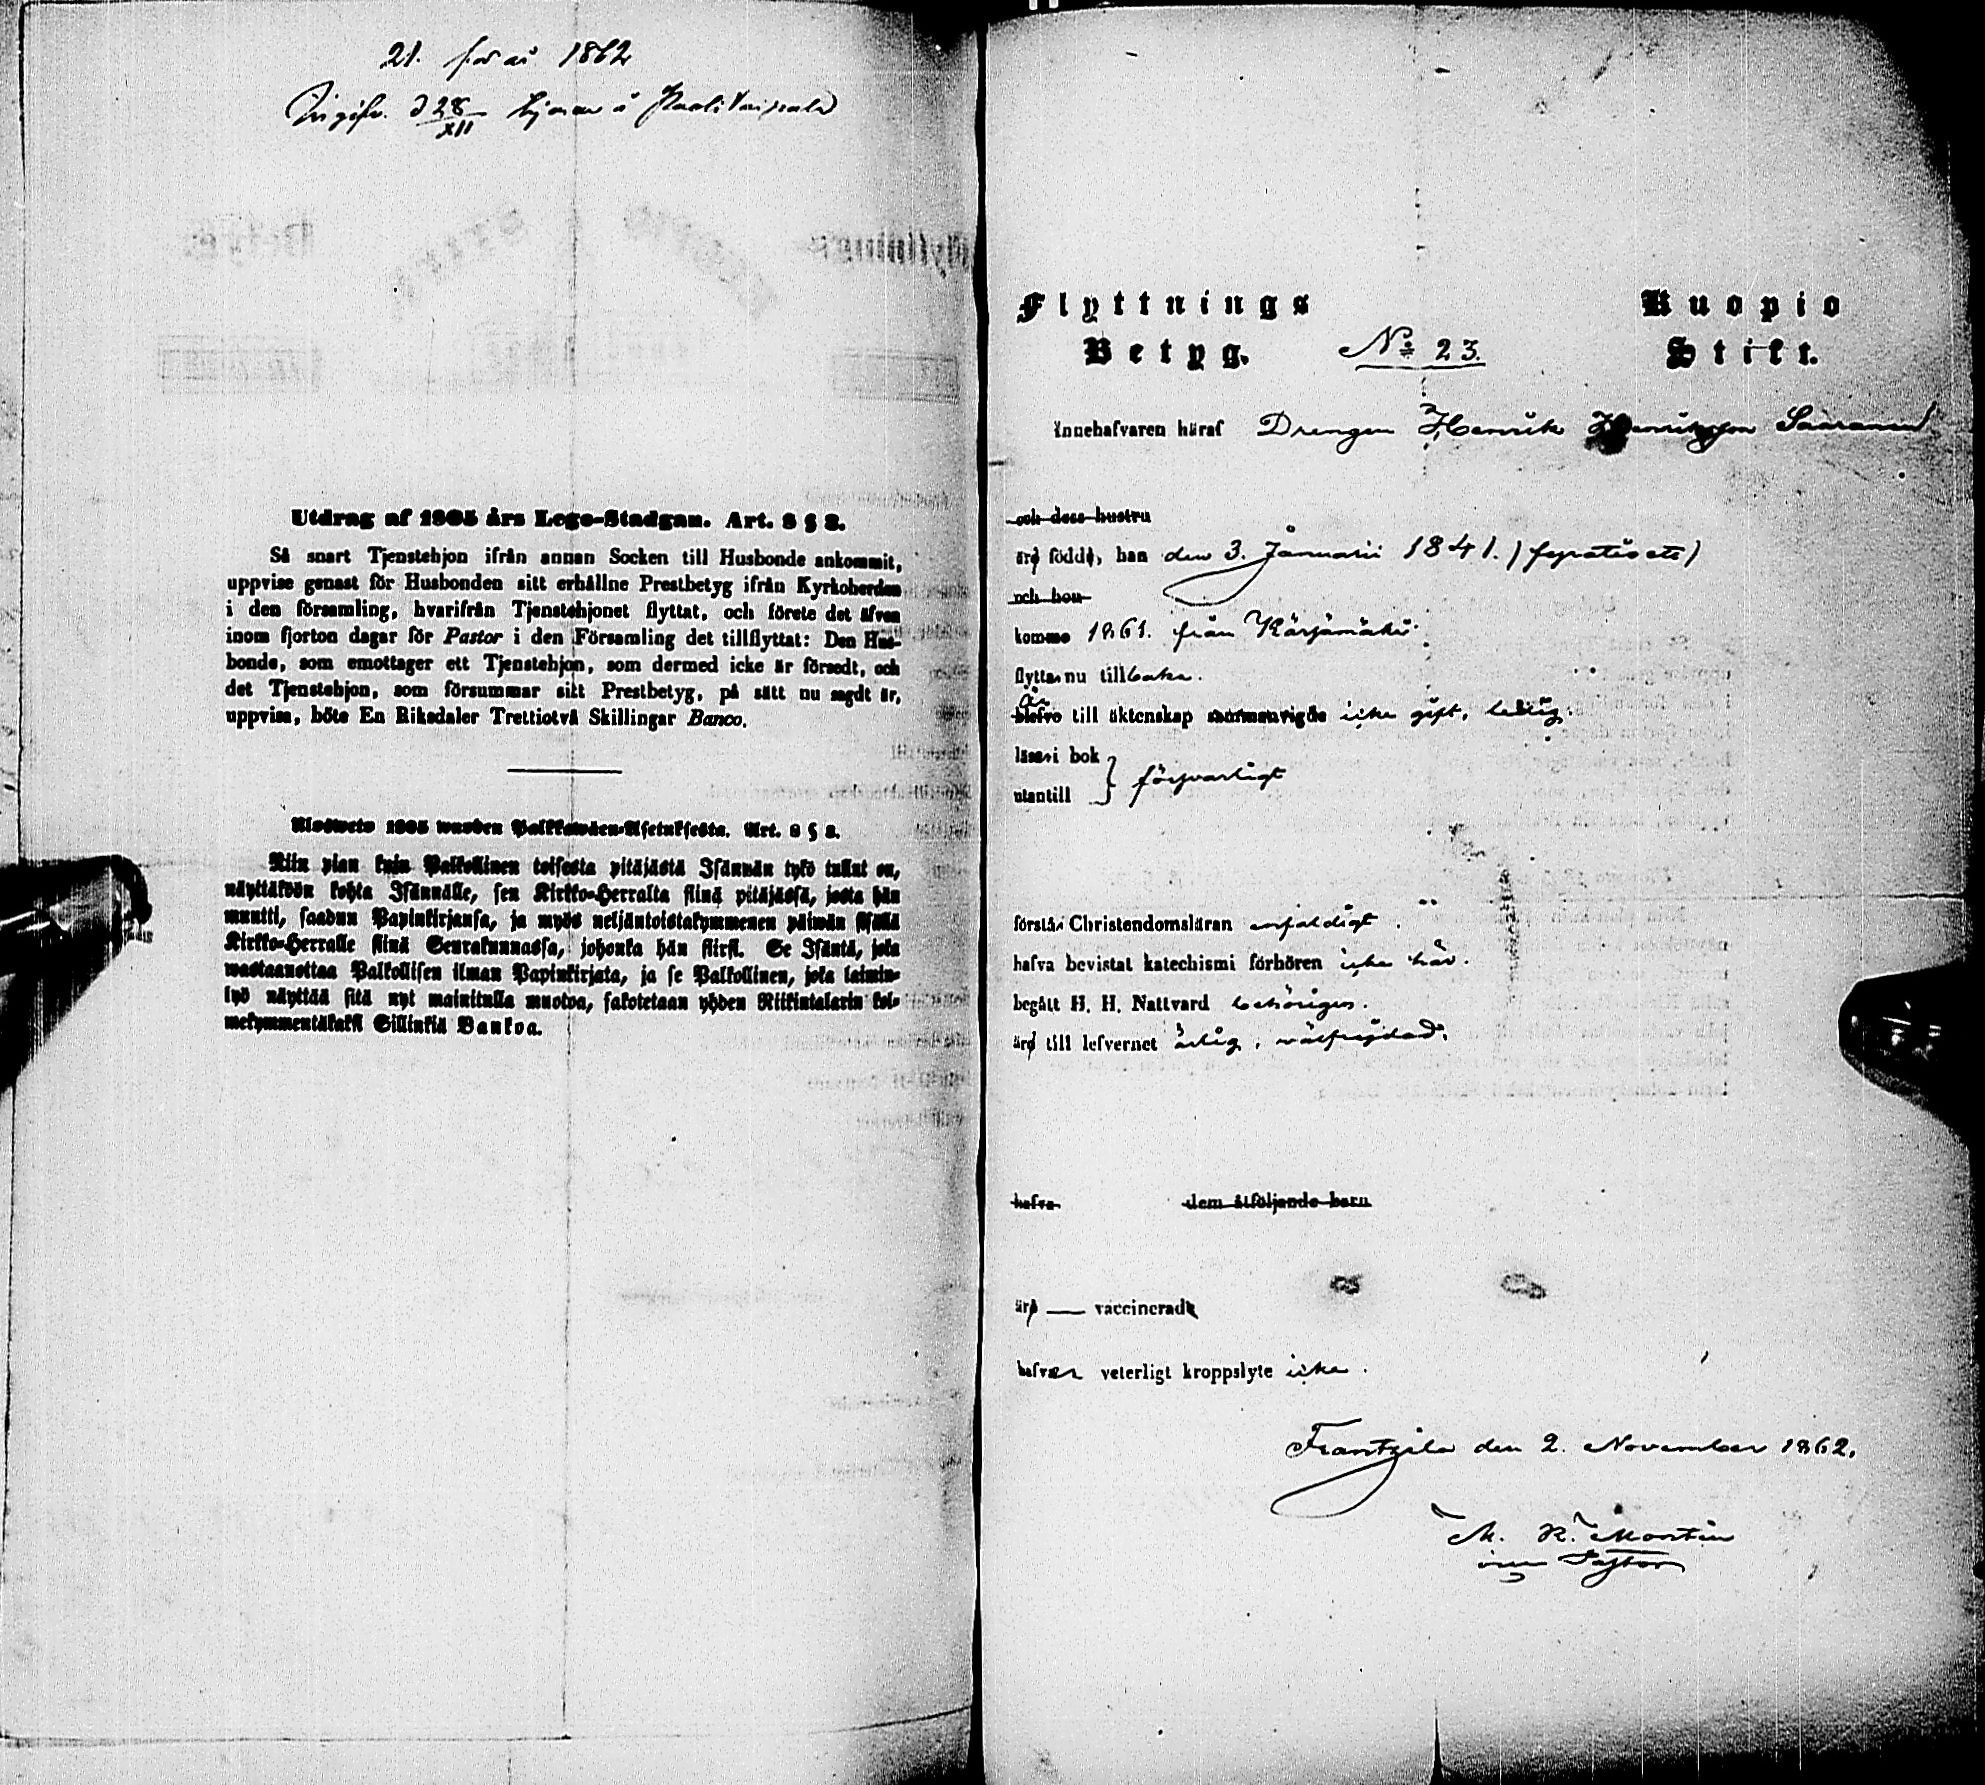 21. för år 1862
d 28/XII tjenar å
Utdrag af 1805 års Lego-Stadgan. Art. 8 § 8.
Så snart Tjenstehjon ifrån annan Socken till Husbonde ankommit,
uppvise genast för Husbonden sitt erhållne Prestbetyg ifrån Kyrkoherden
i den församling, hvarifrån Tjenstehjonet flyttat, och förete det äfven
inom fjorton dagar för Pastor i den Församling det tillflyttat: Den Hus-
bonde, som emottager ett Tjenstehjon, som dermed icke är försedt, och
det Tjenstehjon, som försummar sitt Prestbetyg, på sätt nu sagdt är,
uppvisa, böte En Riksdaler Trettiotvå Skillingar Banco.
Ulosweto 1805 wuoden Palkkawäen-Asetuksesta. Art. 8 § 8.
Niin pian kuin Palkollinen toisesta pitäjästä Isännän tykö tullut on,
näyttäköön kohta Isännälle, sen Kirkko-Herralta siinä pitäjässä, josta hän
muutti, saadun Papinkirjansa, ja myös neljäntoistakymmenen päiwän sisällä
Kirkko-Herralle siinä Seurakunnassa, johonka hän siirsi. Se Isäntä, joka
wastaanottaa Palkollisen ilman Papinkirjata, ja se Palkollinen, joka laimin-
lyö näyttää sitä nyt mainitulla muotoa, sakotetaan yhden Riikintalarin kol-
mekymmentäkaksi Sillinkiä Bankoa.
Flyttnings Kuopio
Betyg. № 23. Stift.
Innehafvaren häraf Drengen Henrik Henriksson Saaranen
och dess hustru
äro födde, han den 3. Januarii 1841.
och hon
komme 1861. från Kärsämäki
flytta nu tillbaka.
är
blefvo till äktenskap sammanvigde icke gift, ledig.
läsa i bok
utantill } försvarligt
förstå Christendomsläran enfaldigt.
hafva bevistat katechismi förhören icke här.
begått H. H. Nattvard behörigen.
äro till lefvernet ärlig, välfrejdad.
hafva dem åtföljande barn
äro — vaccinerade
hafva veterligt kroppslyte icke.
Frantzila den 2. November 1862.
M. R. Montin
Pastor